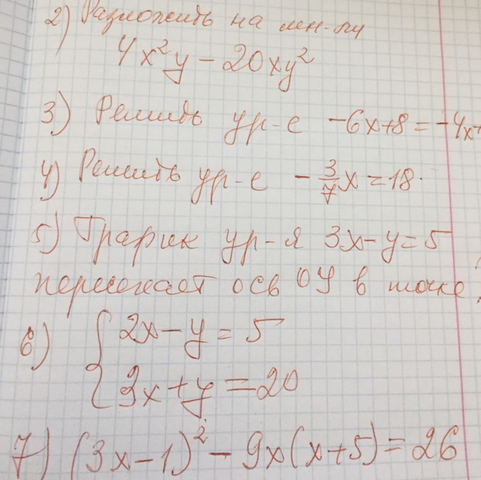 2) Разложить на мн-ли
4x²y - 20xy²
3) Решить ур-е -6x+8=-4x
4) Решить ур-е -3/7x=18.
5) График ур-я 3x-y=5
пересекает ось OY в точке
6) { 2x-y=5
3x+y=20
7) (3x-1)² - 9x(x+5)=26